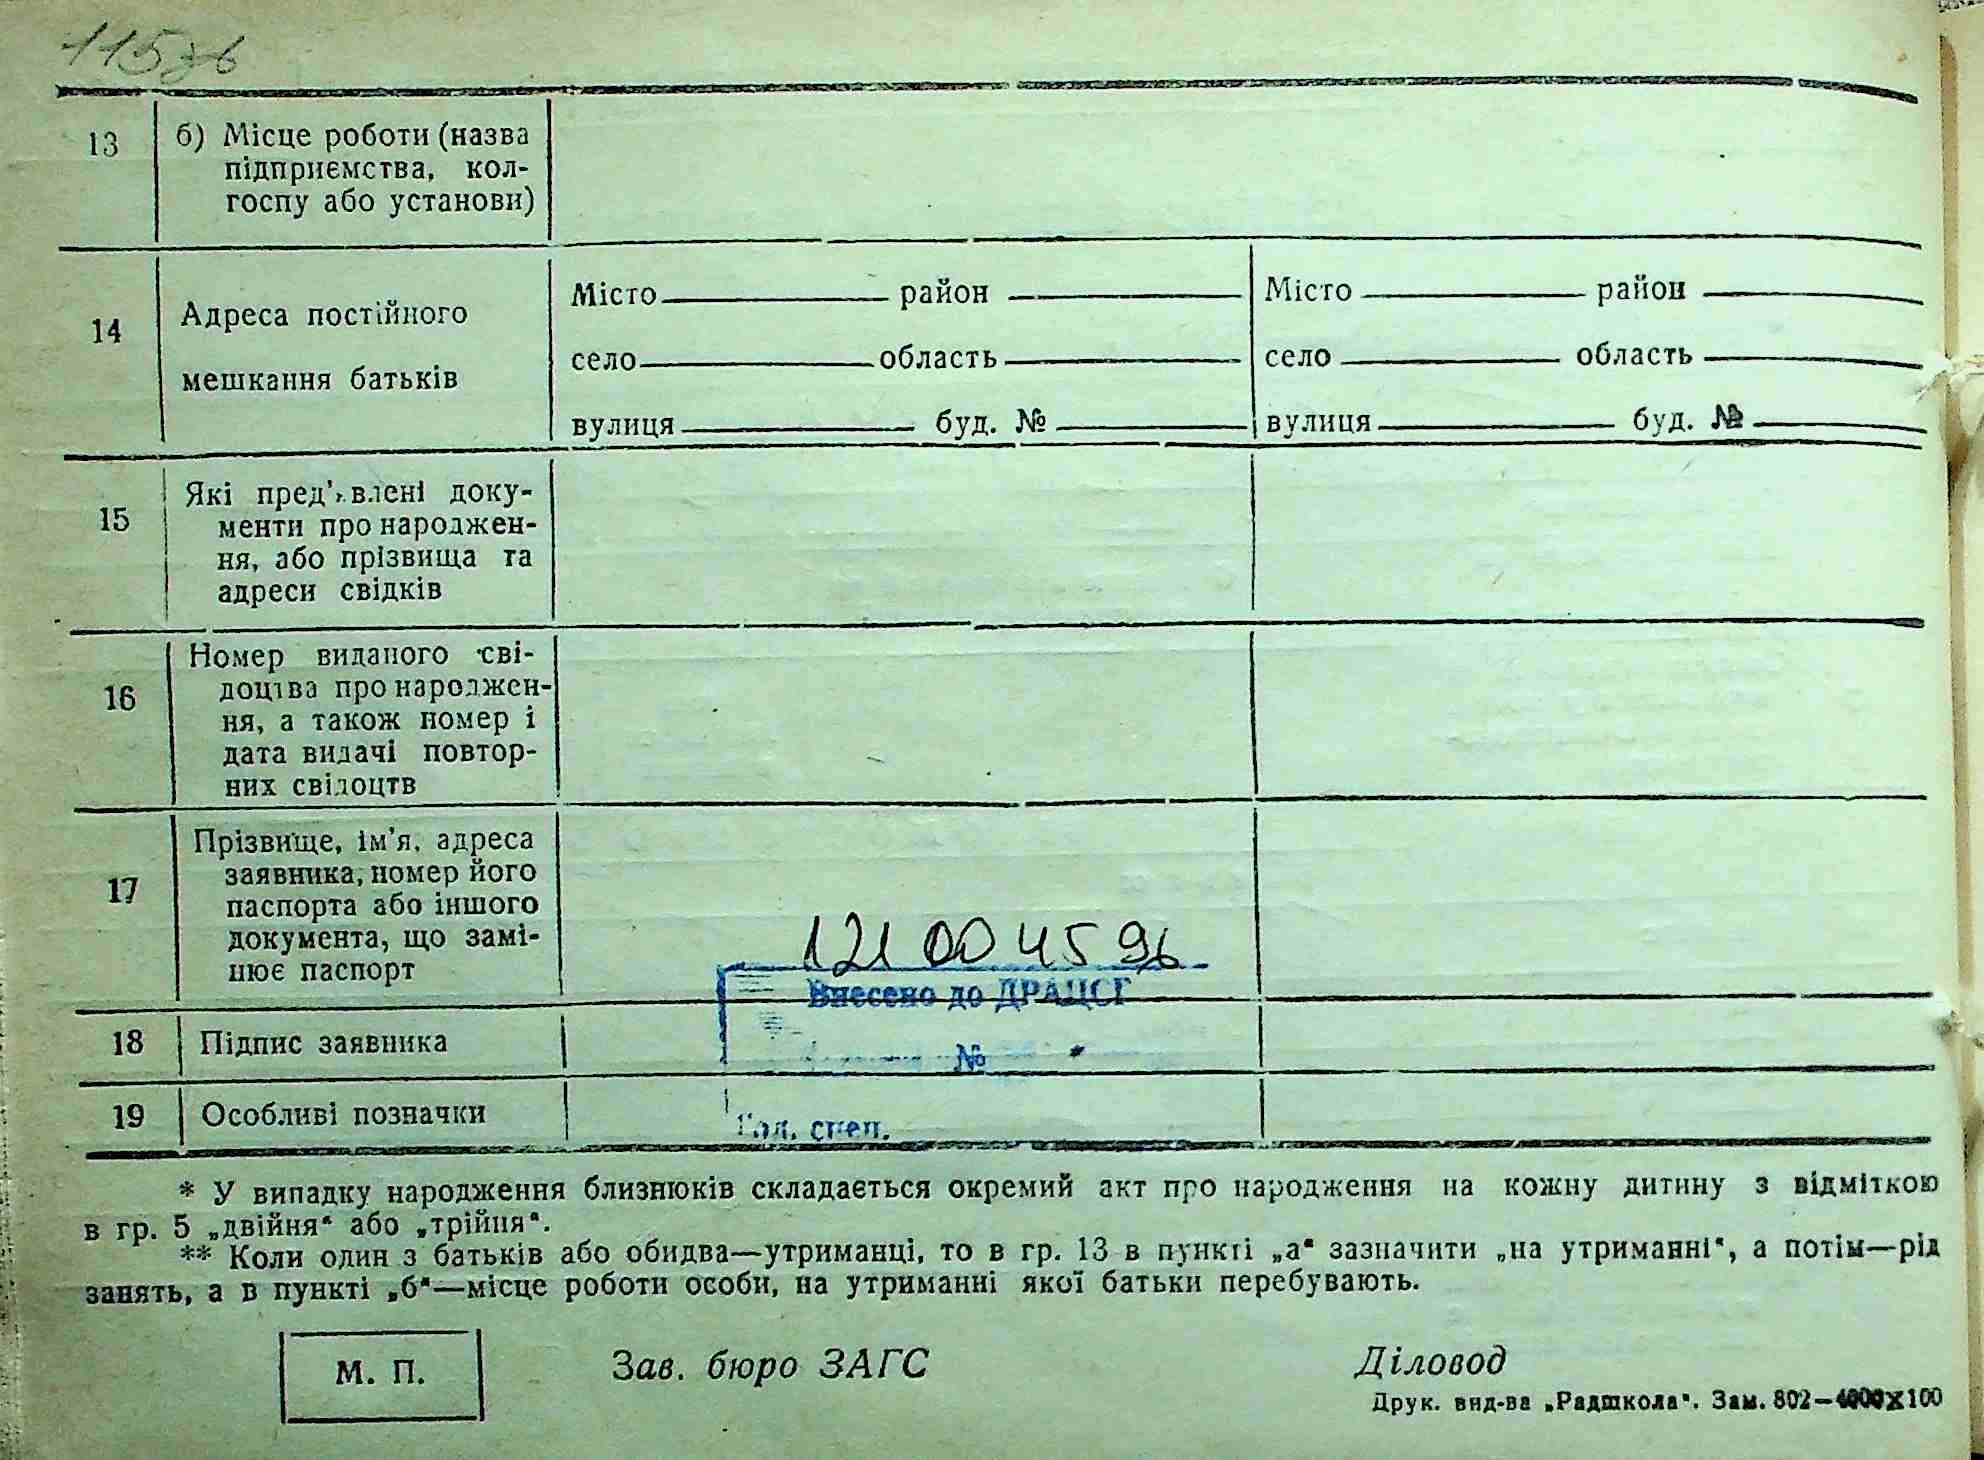 115зв
13 б) Місце роботи (назва
підприємства, кол-
госпу або установи)
14 Адреса постійного
мешкання батьків
Місто район Місто район
село область село область
вулиця буд. № вулиця буд. №
15 Які пред'явлені доку-
менти про народжен-
ня, або прізвища та
адреси свідків
16 Номер виданого сві-
доцтва про народжен-
ня, а також номер і
дата видачі повтор-
них свідоцтв
17 Прізвище, ім'я, адреса
заявника, номер його
паспорта або іншого
документа, що замі-
нює паспорт
121 00 45 96
Внесено до ДРАЦСГ
18 Підпис заявника
№
19 Особливі позначки
Гол. спец.
* У випадку народження близнюків складається окремий акт про народження на кожну дитину з відміткою
в гр. 5 „двійня“ або „трійня“.
** Коли один з батьків або обидва—утриманці, то в гр. 13 в пункті „а“ зазначити „на утриманні“, а потім—рід
занять, а в пункті „б“—місце роботи особи, на утриманні якої батьки перебувають.
М. П. Зав. бюро ЗАГС Діловод
Друк. вид-ва „Радшкола“. Зам. 802—4000X100